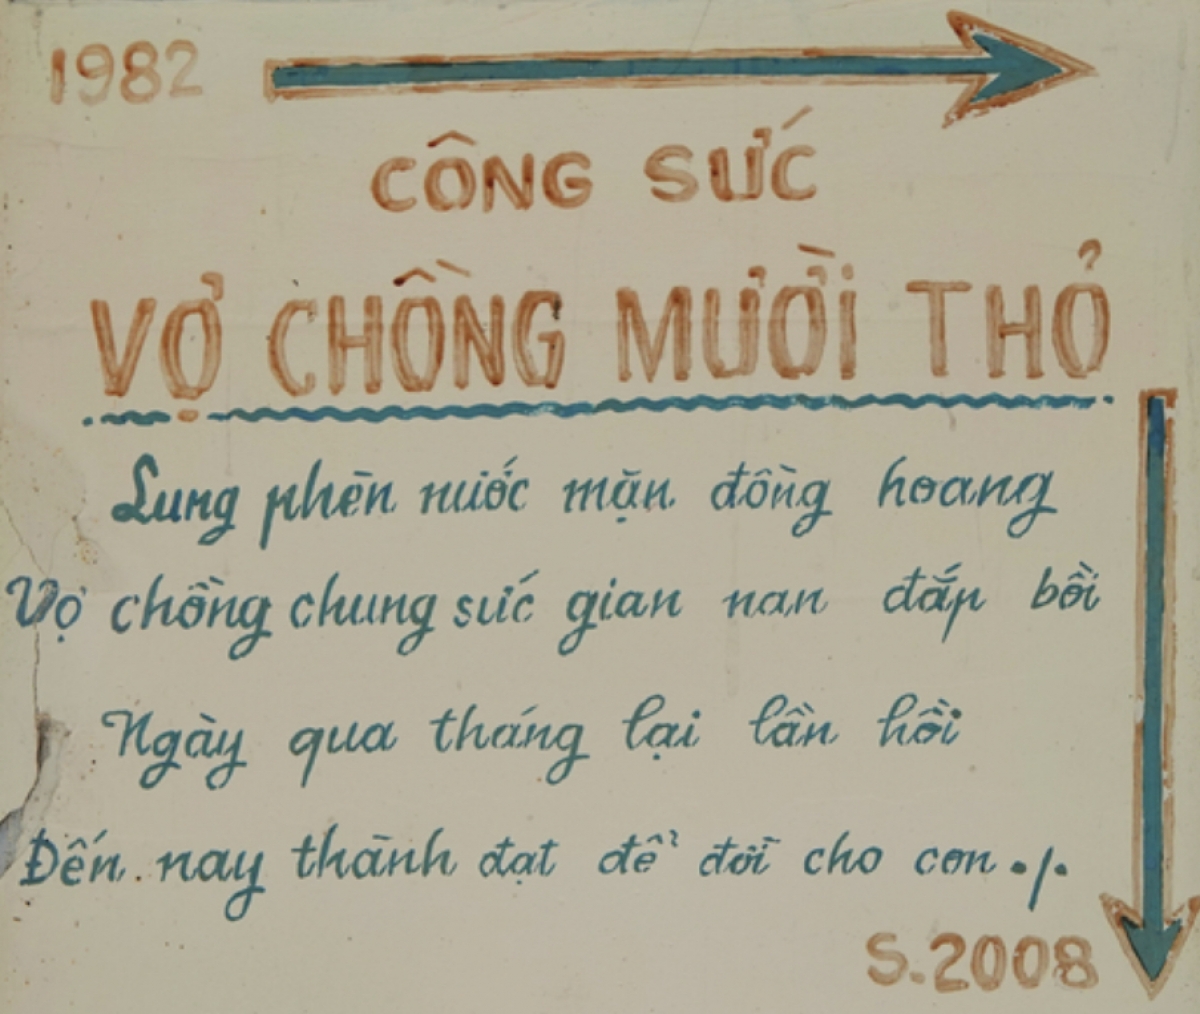 1982
CÔNG SỨC
VỢ CHỒNG MƯỜI THỎ
Lung phèn nước mặn đồng hoang
Vợ chồng chung sức gian nan đắp bồi
Ngày qua tháng lại lần hồi
Đến nay thành đạt để đời cho con ./.
S.2008